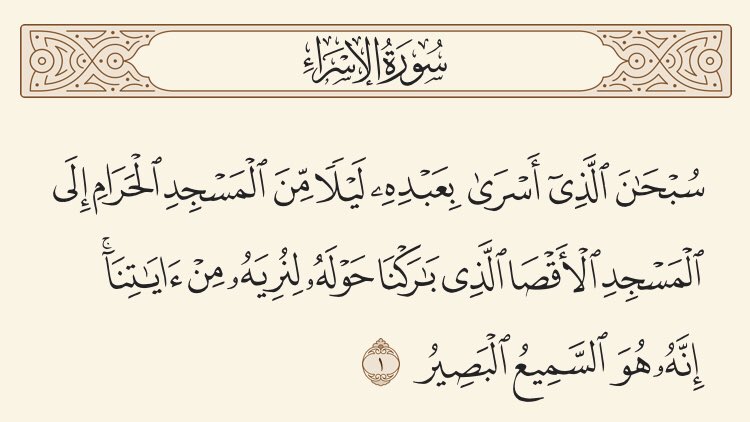 سُورَةُ الإِسْرَاءِ
سُبْحَٰنَ ٱلَّذِىٓ أَسْرَىٰ بِعَبْدِهِۦ لَيْلًا مِّنَ ٱلْمَسْجِدِ ٱلْحَرَامِ إِلَى
ٱلْمَسْجِدِ ٱلْأَقْصَا ٱلَّذِى بَٰرَكْنَا حَوْلَهُۥ لِنُرِيَهُۥ مِنْ ءَايَٰتِنَآ ۚ
إِنَّهُۥ هُوَ ٱلسَّمِيعُ ٱلْبَصِيرُ ١